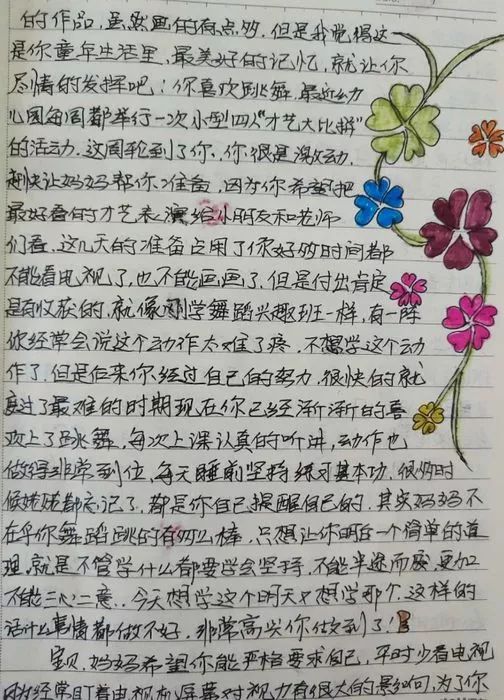 的作品，虽然画的有点夸，但是我觉得这
是你童年生活里，最美好的记忆，就让你
尽情的发挥吧！你喜欢跳舞，最近幼
儿园每周都举行一次小型四人“才艺大比拼”
的活动，这周轮到了你，你很是激动，
赶快让妈妈帮你准备，因为你希望把
最好看的才艺表演给小朋友和老师
们看，这几天的准备占用了你好多时间都
不能看电视了，也不能画画了，但是付出肯定
是有收获的，就像刚学舞蹈兴趣班一样，有一阵
你经常会说这个动作太难了疼，不想学这个动
作了，但是后来你经过自己的努力，很快的就
度过了最难的时期现在你已经渐渐的喜
欢上了跳舞，每次上课认真的听讲，动作也
做得非常到位，每天睡前坚持练习基本功，很多时
候姥姥都忘记了，都是你自己提醒自己的，其实妈妈不
在乎你舞蹈跳的有多么棒，只想让你明白一个简单的道
理，就是不管学什么都要学会坚持，不能半途而废，更加
不能三心二意，今天想学这个明天又想学那个，这样的
话什么事情都做不好，非常高兴你做到了！
宝贝，妈妈希望你能严格要求自己，平时少看电视
因为经常盯着电视机屏幕对视力有很大的影响，为了你